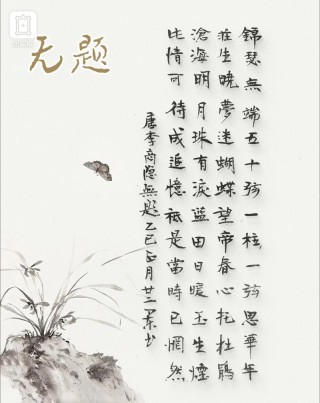 无题
錦瑟無端五十弦一柱一弦思華年
莊生曉夢迷蝴蝶望帝春心托杜鵑
滄海明月珠有淚藍田日暖玉生煙
此情可待成追憶祇是當時已惘然
唐李商隱無題乙巳正月廿二書